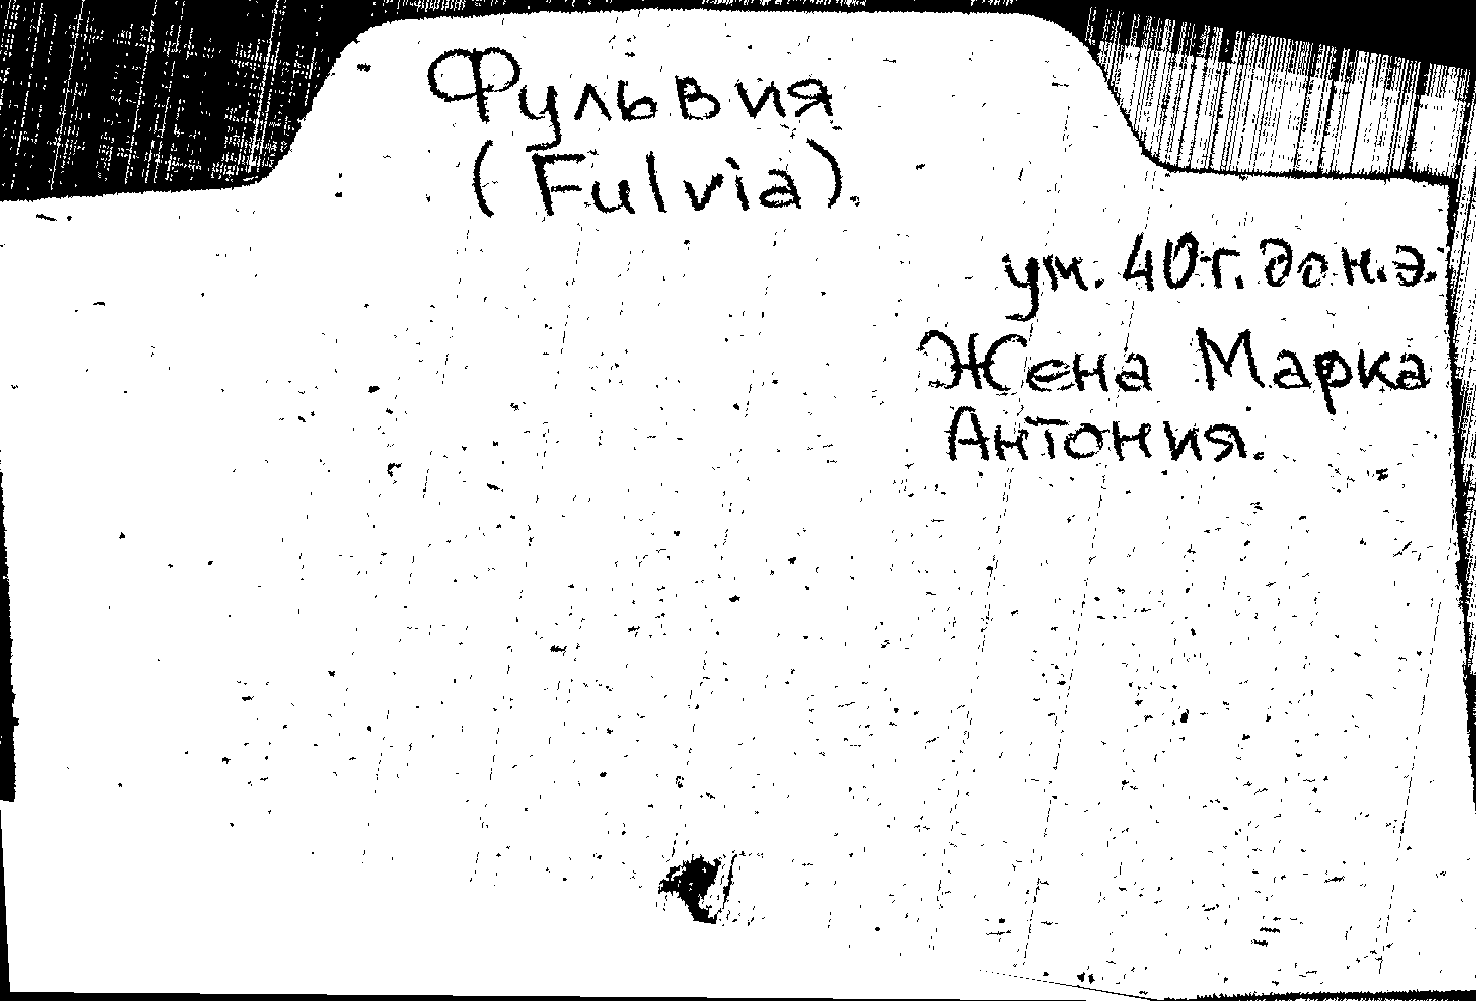 Фульвия
(Fulvia).
ум. 40 г. до н.э.
Жена Марка
Антония.